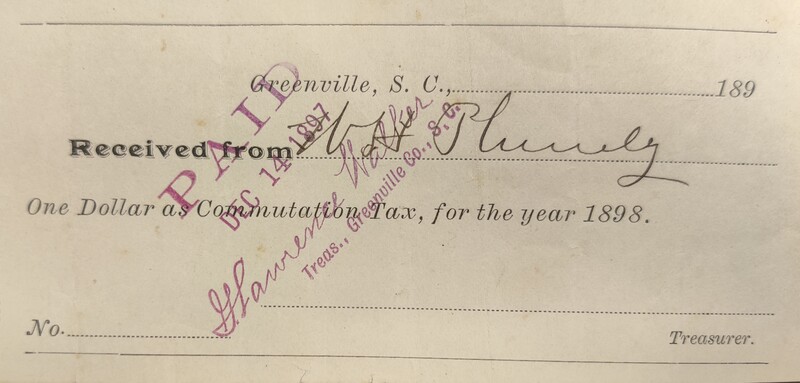 Greenville, S. C., 189
Received from W. H. Plumly
One Dollar as Commutation Tax, for the year 1898.
No.
Treasurer.
PAID
DEC 14 1897
G. Lawrence Walker
Treas., Greenville Co., S. C.